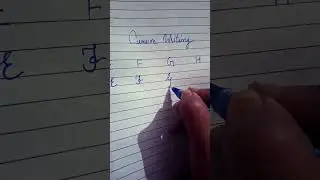 Cursive Writing
F G H
E F G
E F G